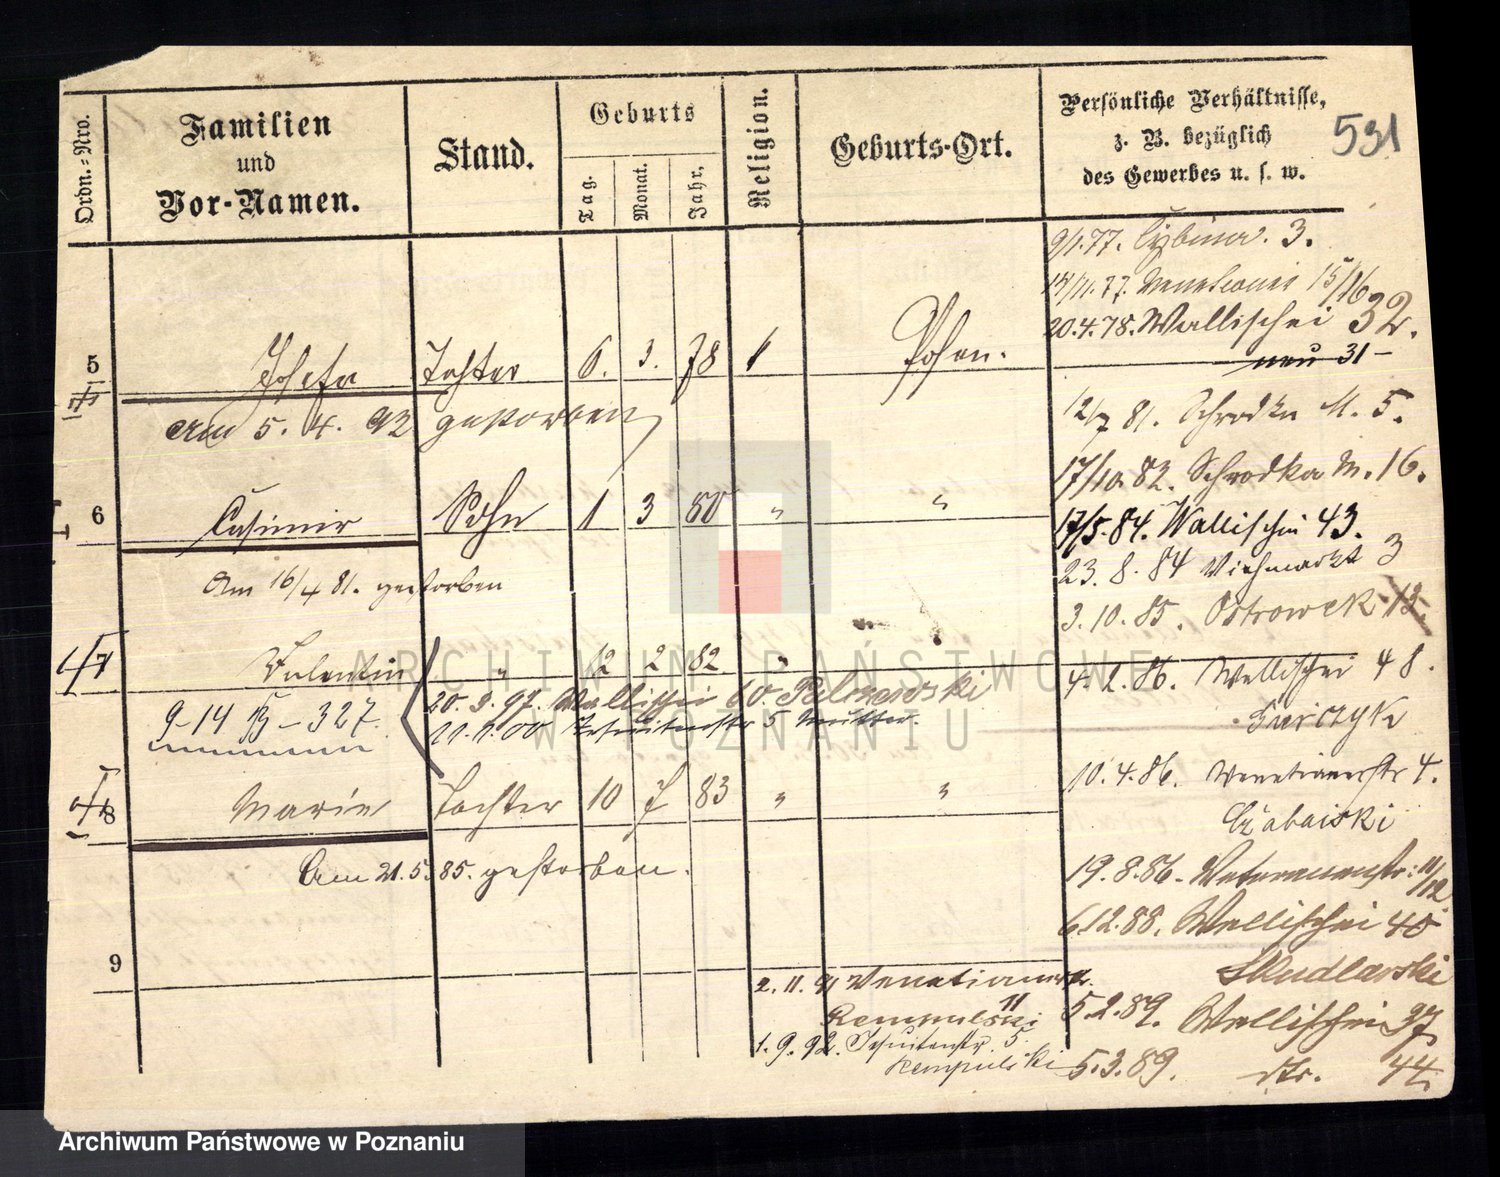 Ordn.=Nro.
Familien
und
Vor-Namen.
Stand.
Geburts
Tag.
Monat.
Jahr.
Religion.
Geburts-Ort.
Persönliche Verhältnisse,
z. B. bezüglich
des Gewerbes u. s. w.
531
9/1.77. Cybina. 3.
77. Venetianer 15/16
20.4.78. Wallischei 32.
neu 31 -
5 Josefa Tochter 6. 3. 78 Posen.
am 5. 4. 92 gestorben
12/7 81. Schrodka M. 5.
17/10.82. Schrodka M. 16.
6 Casimir Sohn 1 3 80 " "
17/5.84. Wallischei 43.
23. 8. 84 Viehmarkt 3
Am 16/4 81. gestorben
3. 10. 85. Ostrowek 13.
7 Valentin " 12 2 82 "
4. 2. 86. Wallischei 48.
20. 9. 97. Wallischei 60.
9-14 B - 327.
11.1.00 Jesuitenstr 5 Mutter.
10. 4. 86. Venetianerstr 4.
8 Marie Tochter 10 7 83 " "
Am 21. 5. 85. gestorben.
19. 8. 86. Venetianerstr. 11/12.
6.12.88. Wallischei 40
Skudlarski
9
2. 11. 91 Venetianerstr.
11
Rempulski
5.2.89. Wallischei 37
1. 9. 92. Jesuitenstr. 5.
Rempulski
5.3.89. dto. 44.
ARCHIWUM PAŃSTWOWE
W POZNANIU
Archiwum Państwowe w Poznaniu